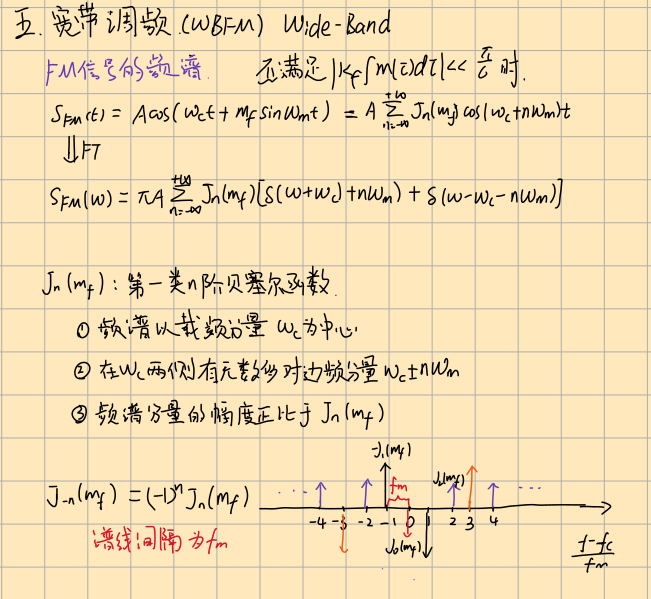 五. 宽带调频.(WBFM) Wide-Band
FM信号的频谱. 不满足|K_f∫m(τ)dτ|<<π/6时.
S_FM(t) = Acos(ω_ct+m_f sinω_mt) = A∑_{n=-∞}^{+∞} J_n(m_f)cos(ω_c+nω_m)t
⇓FT
S_FM(ω) = πA∑_{n=-∞}^{+∞} J_n(m_f)[δ(ω+ω_c)+nω_m) + δ(ω-ω_c-nω_m)]
J_n(m_f): 第一类n阶贝塞尔函数.
① 频谱以载频分量 ω_c为中心.
② 在ω_c两侧有无数多对边频分量ω_c±nω_m
③ 频谱分量的幅度正比于 J_n(m_f)
-J_1(m_f)
J_{-n}(m_f) = (-1)^n J_n(m_f)
··· fm J_2(m_f) ···
-4 -3 -2 -1 0 1 2 3 4
谱线间隔为fm
J_0(m_f)
f-fc/fm